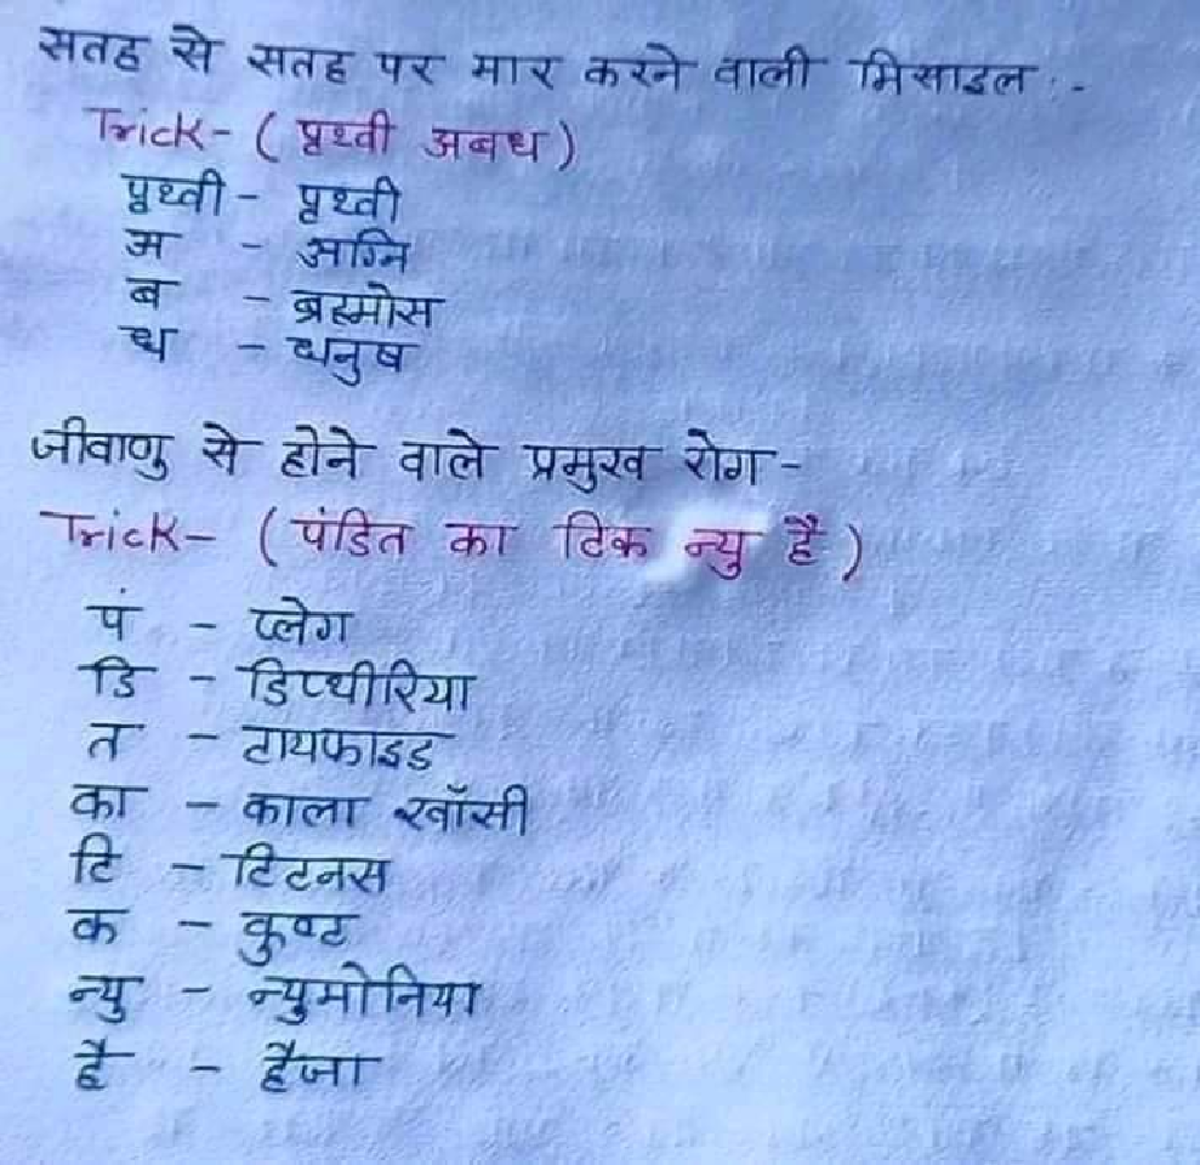 सतह से सतह पर मार करने वाली मिसाइल :-
Trick- ( पृथ्वी अबध )
पृथ्वी - पृथ्वी
अ - अग्नि
ब - ब्रह्मोस
ध - धनुष
जीवाणु से होने वाले प्रमुख रोग -
Trick- ( पंडित का टिक न्यु है )
पं - प्लेग
डि - डिप्थीरिया
त - टायफाइड
का - काला खाँसी
टि - टिटनस
क - कुष्ट
न्यु - न्युमोनिया
है - हैजा